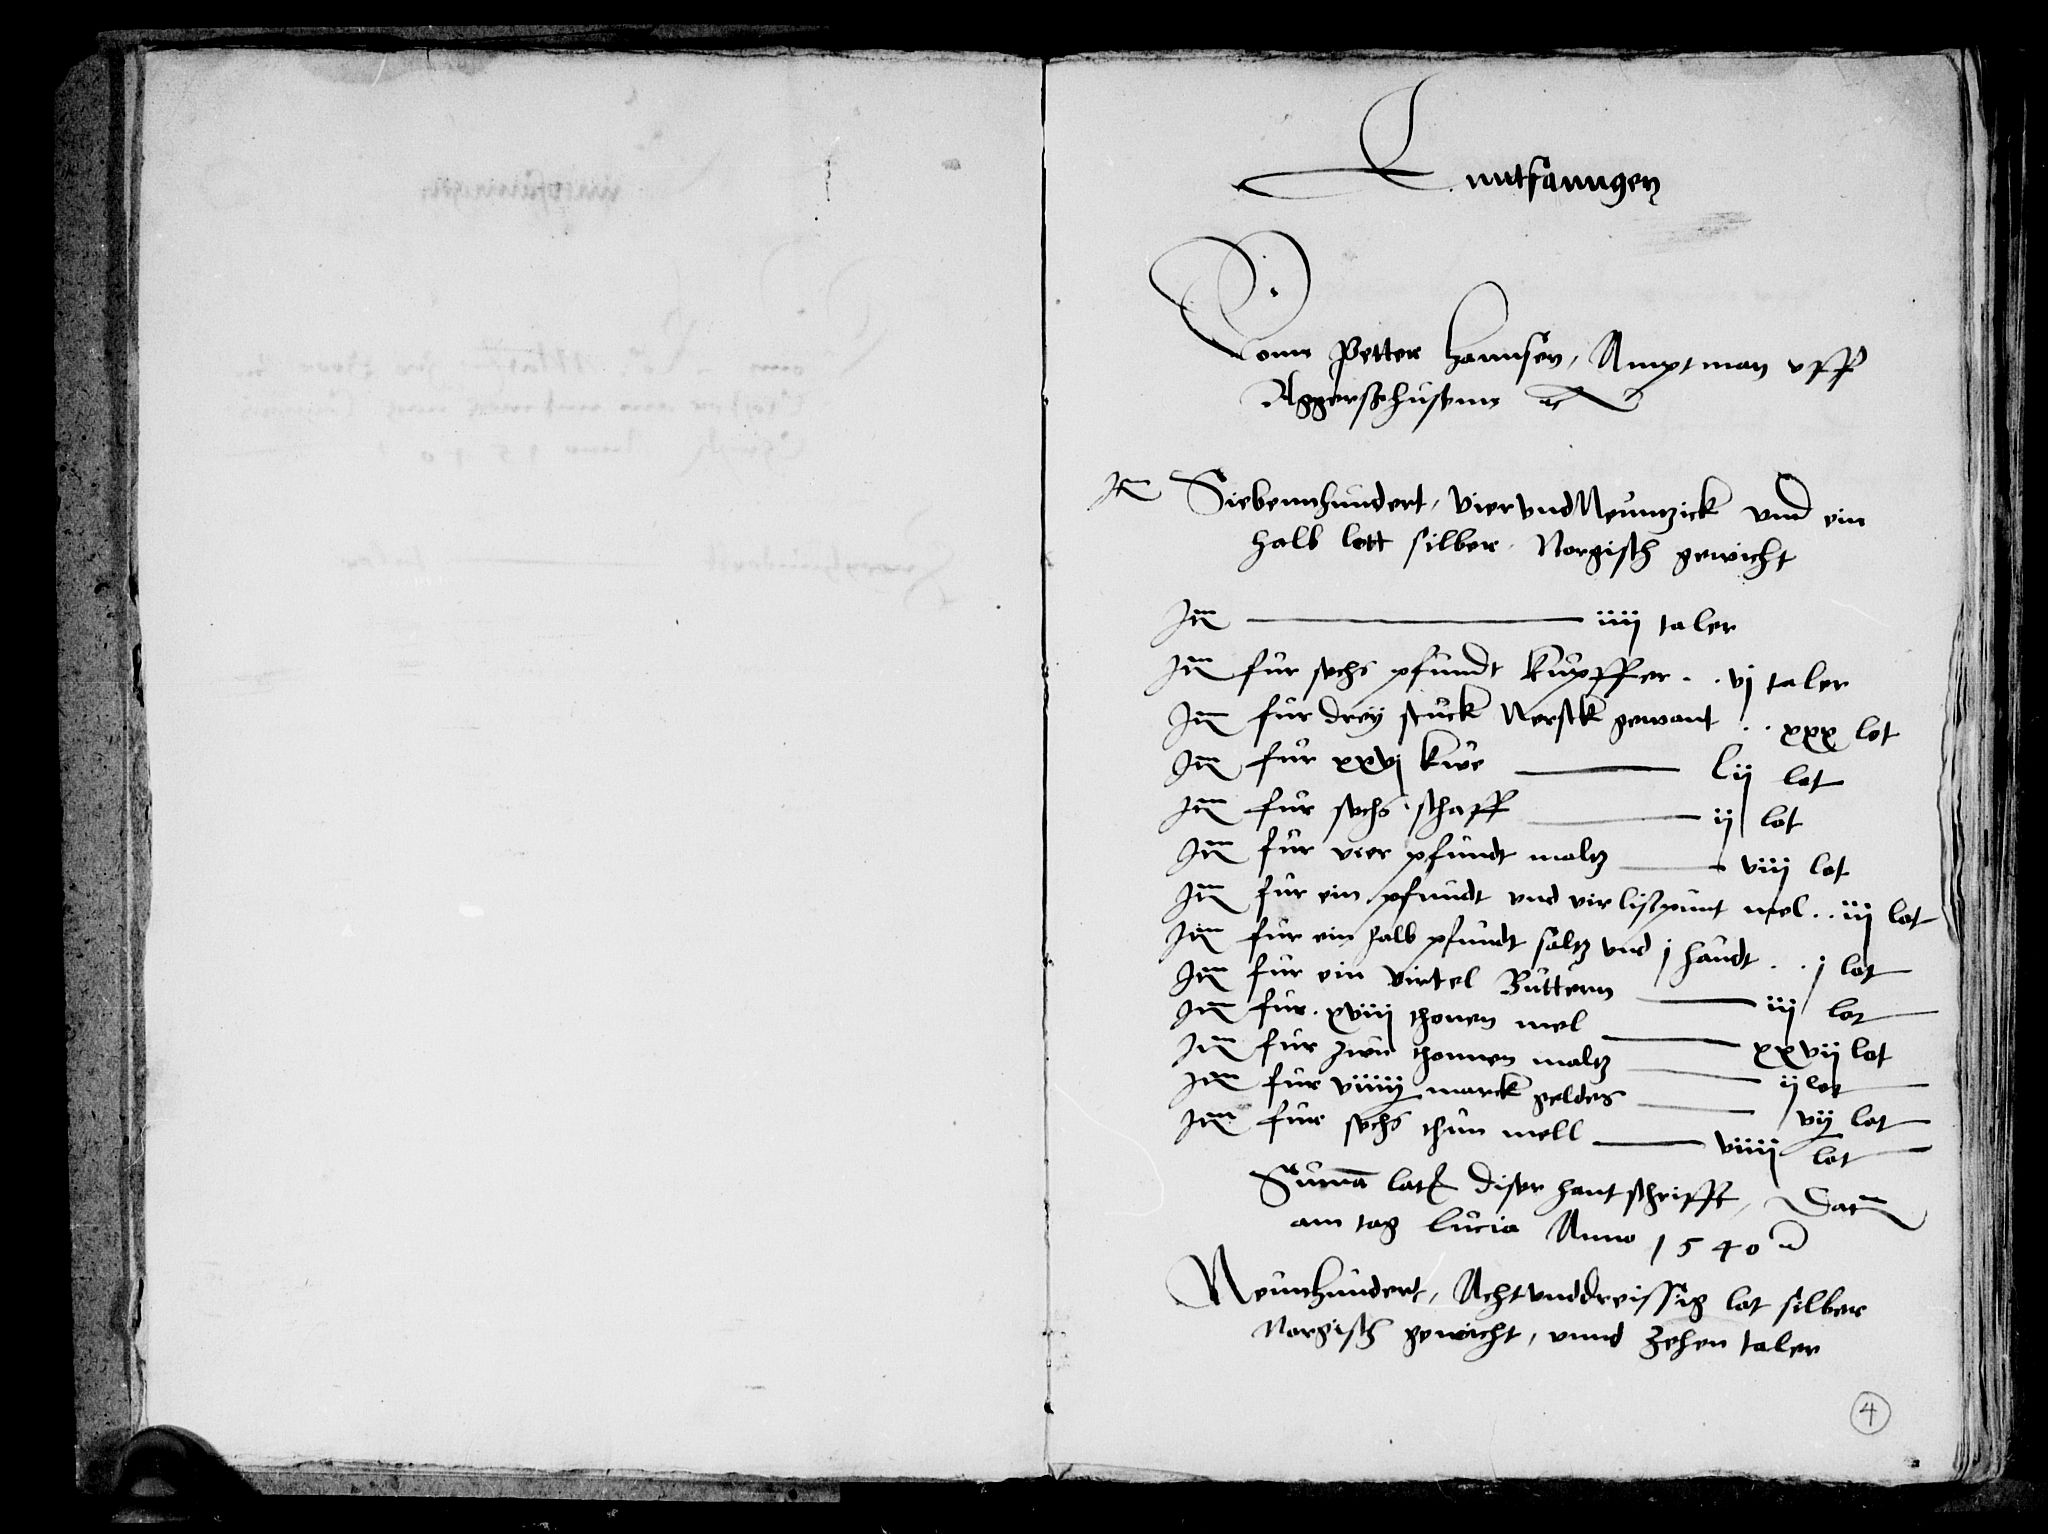 Enntfanngen
Vonn Petter Hannsen, Amptman vff
Aggerschusenn
Itm Siebennhundert, Vier vnd Neuntzick vnd ein
halb lott silber. Norgisch gewicht
Itm ——— iiij taler
Itm fur sechs pfundt kupffer . . vj taler
Itm fur dreÿ stuck Nersck gewant . . xxx lot
Itm fur xxvj kwe ——— Lij lot
Itm fur sechs schaff ——— ij lot
Itm fur vier pfundt maltz ——— viij lot
Itm fur ein pfundt vnd vir lispunt mel . . iij lot
Itm fur ein halb pfundt saltz vnd j haudt . . j lot
Itm fur ein virtel Buttern ——— iij lot
Itm fur xviij thonen mel ——— xxvij lot
Itm fur zwu thonnen maltz ——— ij lot
Itm fur viiij marck geldes ——— vij lot
Itm fur sechs thun mell ——— viiij lot
Suma diser hantschrifft, Datm
am tag lucia Anno 1540
Neunhundert, Acht vnd dreissig lot silber
Norgisch gewicht, vnnd zehen taler
4